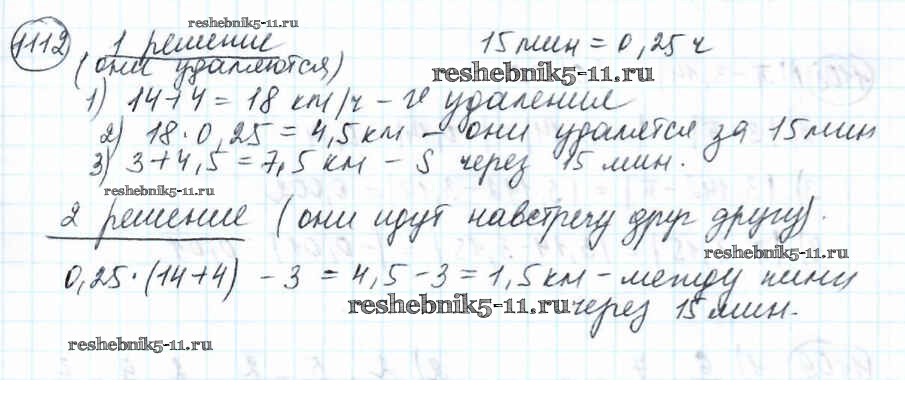 reshebnik5-11.ru
1112 1 решение 15 мин = 0,25 ч
(они удаляются) reshebnik5-11.ru
1) 14+4 = 18 км/ч – υ удаления
2) 18·0,25 = 4,5 км – они удалятся за 15 мин
3) 3+4,5 = 7,5 км – S через 15 мин.
reshebnik5-11.ru
2 решение (они идут навстречу друг другу).
reshebnik5-11.ru
0,25·(14+4) – 3 = 4,5 – 3 = 1,5 км – между ними
reshebnik5-11.ru через 15 мин.
reshebnik5-11.ru